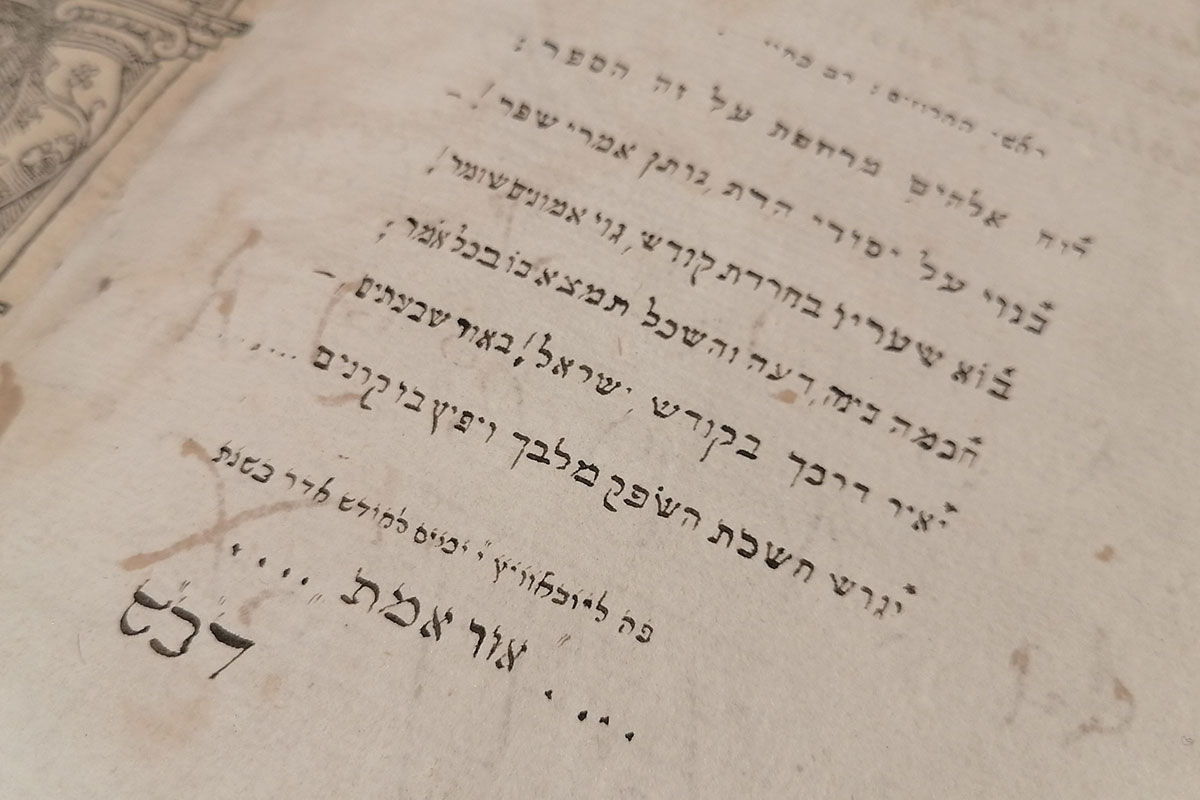 ראשי החרוזים : רב בחיי :
רוח אלהים מרחפת על זה הספר :
בנוי על יסודי הדת, נותן אמרי שפר ! –
בוא שעריו בחרדת קודש, גוי אמונים שומר !
חכמה בינה, דעה והשכל תמצא בו בכל אמר ;
יאיר דרכך בקודש, ישראל ! באור שבעתים –
יגרש חשכת השׂפק מלבך ויפיץ בו קרנים .....
פה ימים לחודש אדר בשנת
.... "אור אמת" ....